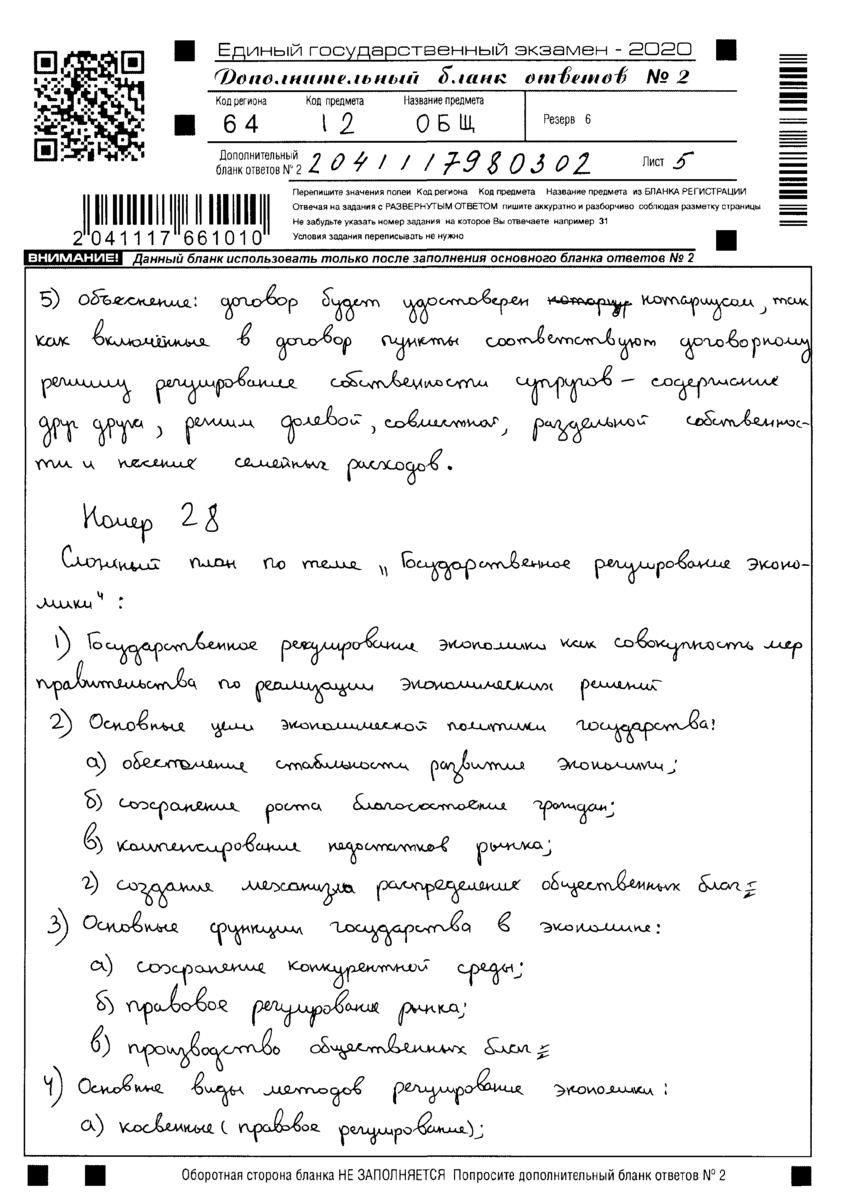 Единый государственный экзамен - 2020
Дополнительный бланк ответов № 2
Код региона Код предмета Название предмета
64 12 ОБЩ Резерв 6
Дополнительный бланк ответов № 2 2041117980302 Лист 5
Перепишите значения полей Код региона Код предмета Название предмета из БЛАНКА РЕГИСТРАЦИИ
Отвечая на задания с РАЗВЕРНУТЫМ ОТВЕТОМ пишите аккуратно и разборчиво соблюдая разметку страницы
Не забудьте указать номер задания на которое Вы отвечаете например 31
Условия задания переписывать не нужно
2 041117 661010
ВНИМАНИЕ! Данный бланк использовать только после заполнения основного бланка ответов № 2
5) Объеснение: договор будет удостоверен нотариусом, так
как включённые в договор пункты соответствуют договорному
режиму регулирование собственности супругов – содержание
друг друга, режим долевой, совместной, раздельной собственнос-
ти и несение семейных расходов.
Номер 28
Сложный план по теме „Государственное регулирование эконо-
мики“ :
1) Государственное регулирование экономики как совокупность мер
правительства по реализации экономических решений
2) Основные цели экономической политики государства:
а) обеспечение стабильности развитие экономики;
б) сохранение роста благосостояние граждан;
в) компенсирование недостатков рынка;
г) создание механизма распределение общественных благ
3) Основные функции государства в экономике:
а) сохранение конкурентной среды;
б) правовое регулирование рынка;
в) производство общественных благ
4) Основные виды методов регулирование экономики:
а) косвенные (правовое регулирование);
Оборотная сторона бланка НЕ ЗАПОЛНЯЕТСЯ Попросите дополнительный бланк ответов № 2